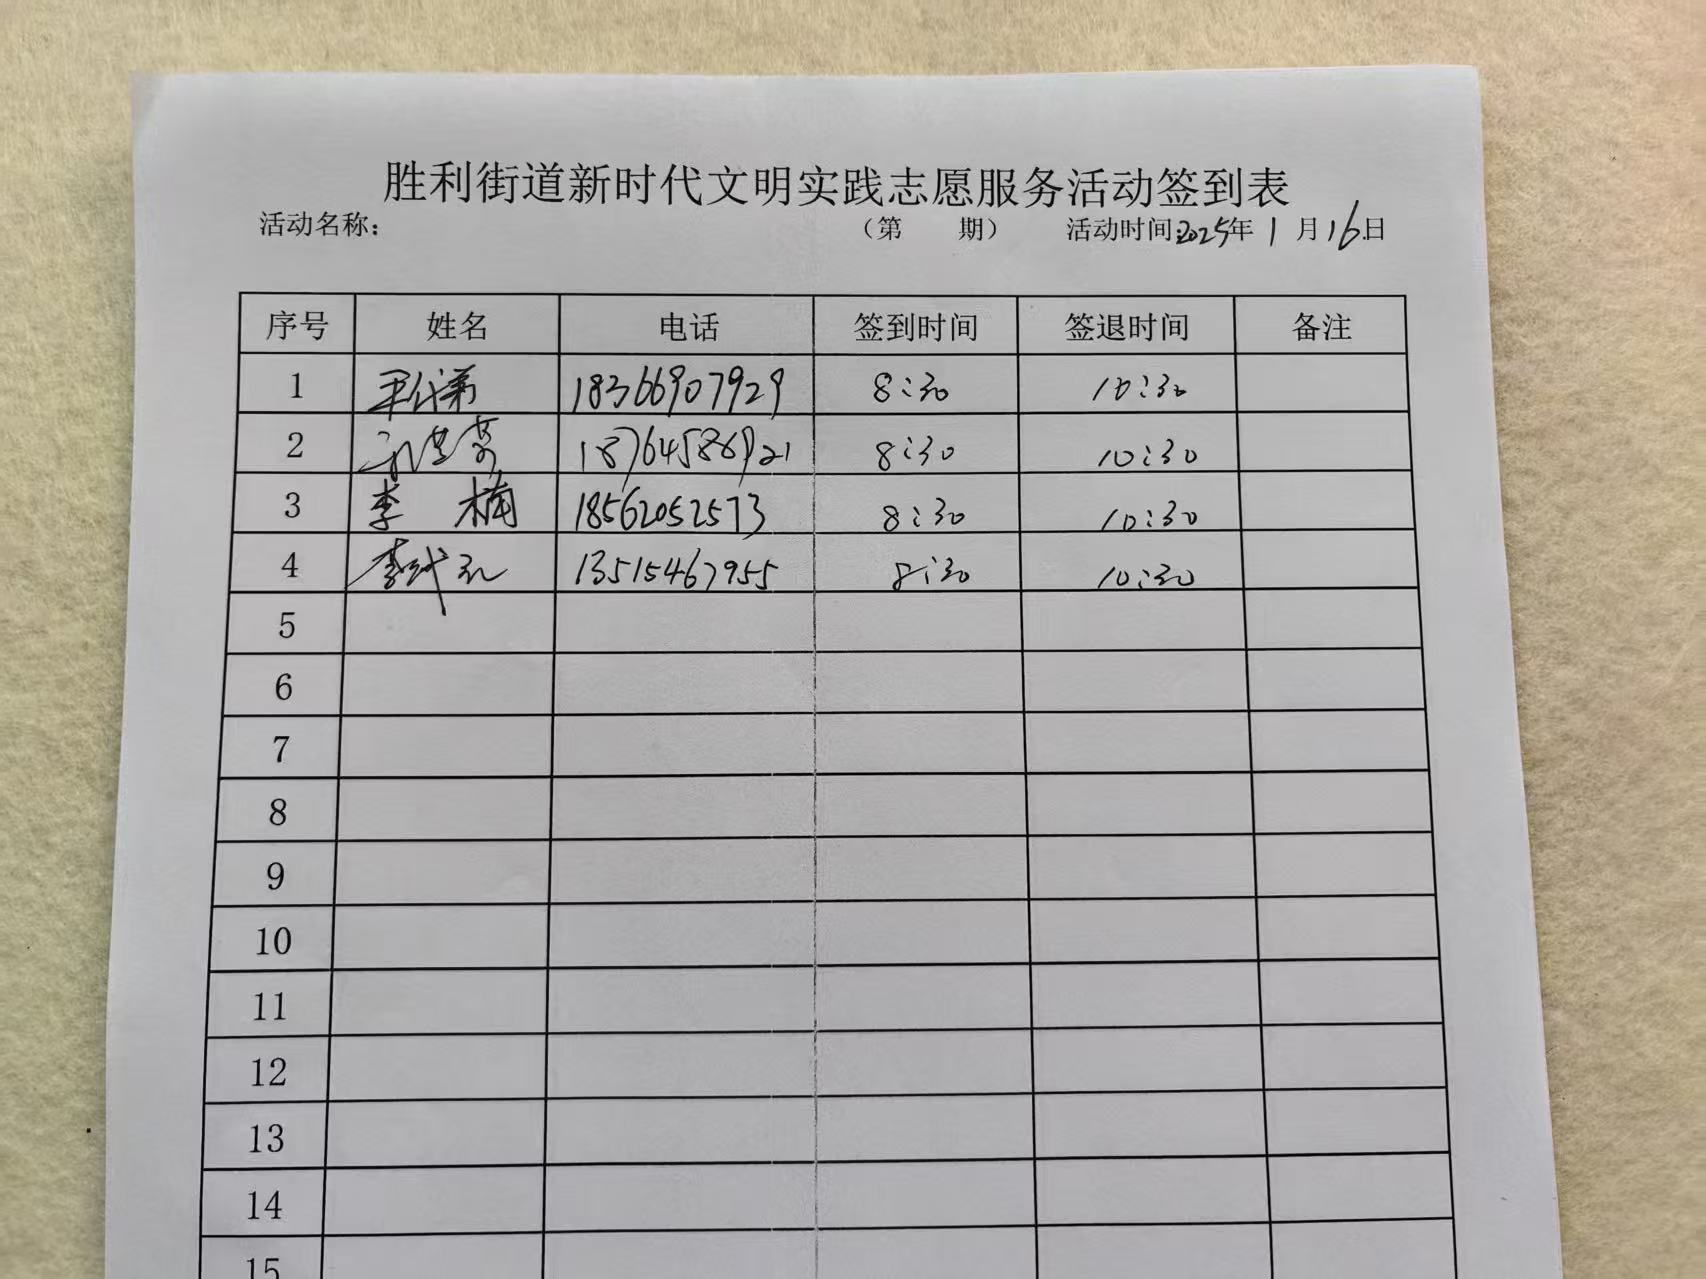 胜利街道新时代文明实践志愿服务活动签到表
活动名称： （第 期） 活动时间:2025年 1 月 16 日
序号 姓名 电话 签到时间 签退时间 备注
1 18366907929 8:30 10:30
2 8:30 10:30
3 李楠 18562052573 8:30 10:30
4 13515467955 8:30 10:30
5
6
7
8
9
10
11
12
13
14
15